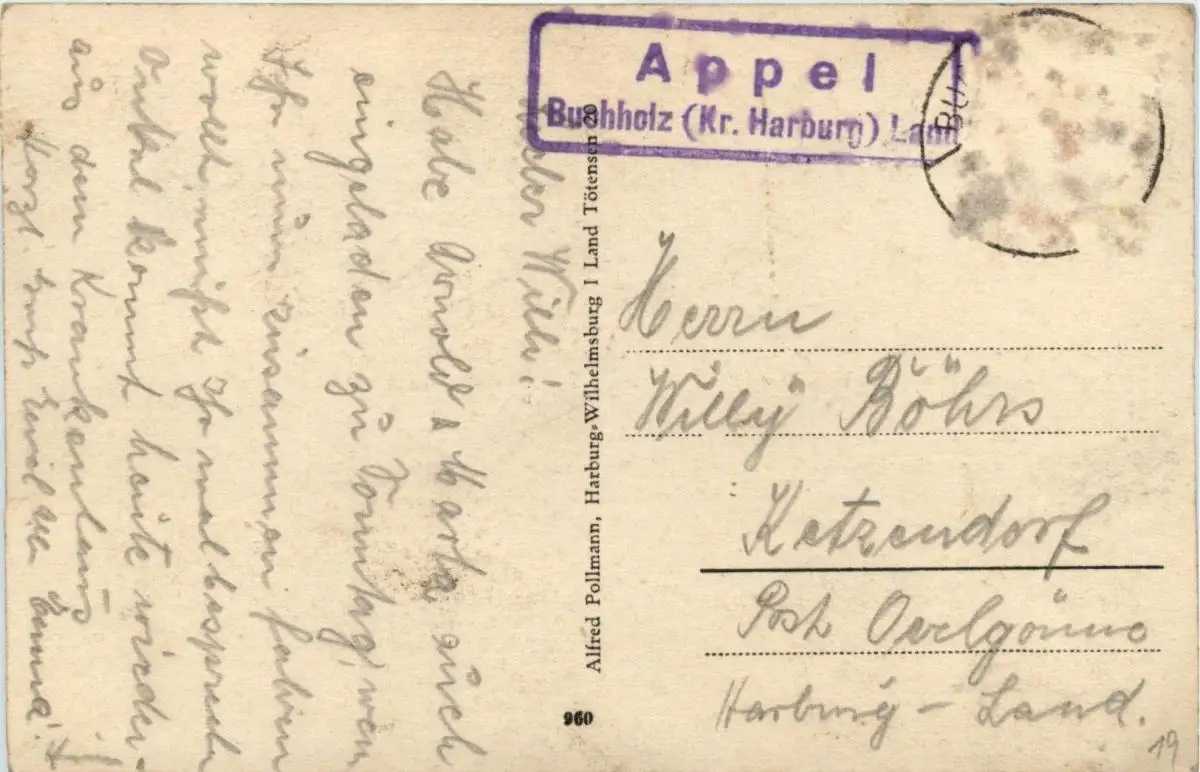 Appel
Buchholz (Kr. Harburg) Land
BU
Lieber Willi!
Habe Arnold & Marta auch
eingeladen zu Sonntag, wen
Ihr nun zusammen fahren
wollt, müßt Ihr mal besprechen
Onkel kommt heute wieder
aus dem Krankenhaus!
Herzl. Emma!
Alfred Pollmann, Harburg-Wilhelmsburg 1 Land Tötensen 20
960
Herrn
Willy Böhrs
Ketzendorf
Post Ovelgönne
Harburg – Land.
19